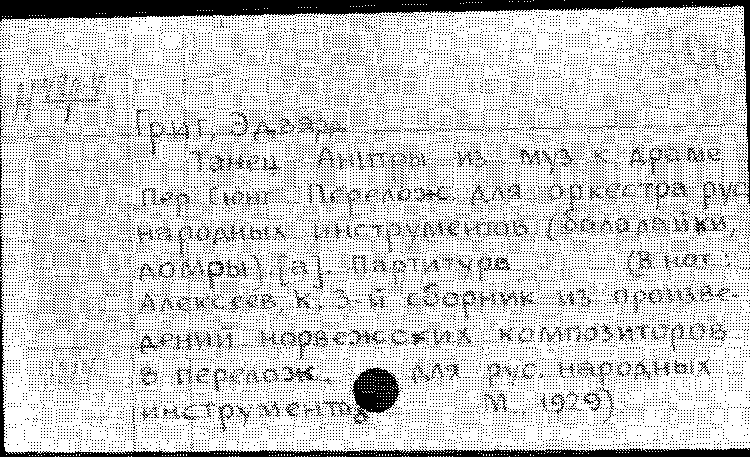 Григ, Эдвард
Танец Анитры из муз. к драме
Пер Гюнт. Перелож. для оркестра рус.
народных инструментов (балалайки,
домры). [a]. Партитура (В нот.:
Алексеев, К. 3-й сборник из произве-
дений норвежских композиторов
в перелож. для рус. народных
инструментов М., 1929)